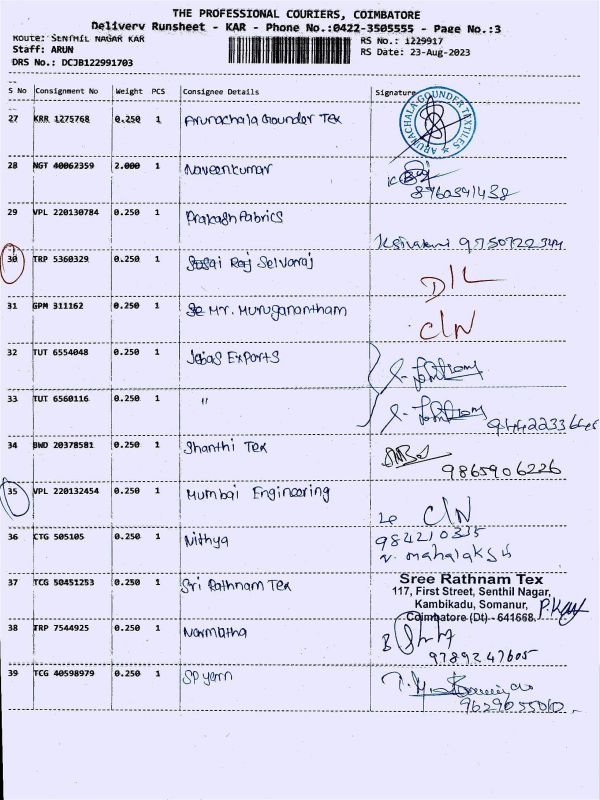 THE PROFESSIONAL COURIERS, COIMBATORE
Delivery Runsheet - KAR - Phone No.:0422-3505555 - Page No.:3
Route: SENTHIL NAGAR KAR
RS No.: 1229917
Staff: ARUN
RS Date: 23-Aug-2023
DRS No.: DCJB122991703
S No Consignment No Weight PCS Consignee Details Signature
27 KRR 1275768 0.250 1 Arunachala Gounder Tex
ARUNACHALA GOUNDER TEXTILES
28 NGT 40062359 2.000 1 Naveenkumar
8760391438
29 VPL 220130784 0.250 1 Prakash Fabrics
30 TRP 5360329 0.250 1 Raj Selvaraj
D/L
31 GPM 311162 0.250 1 Mr. Muruganantham
C/N
32 TUT 6554048 0.250 1 Jebas Exports
33 TUT 6560116 0.250 1 "
34 BWD 20378581 0.250 1 Shanthi Tex
9865906226
35 VPL 220132454 0.250 1 Mumbai Engineering
C/N
36 CTG 505105 0.250 1 Nithya
984210335
37 TCG 50451253 0.250 1 Sri Rathnam Tex
Sree Rathnam Tex
117, First Street, Senthil Nagar,
Kambikadu, Somanur,
Coimbatore (Dt) - 641668.
38 TRP 7544925 0.250 1 Narmatha
9789247605
39 TCG 40598979 0.250 1 SP yarn